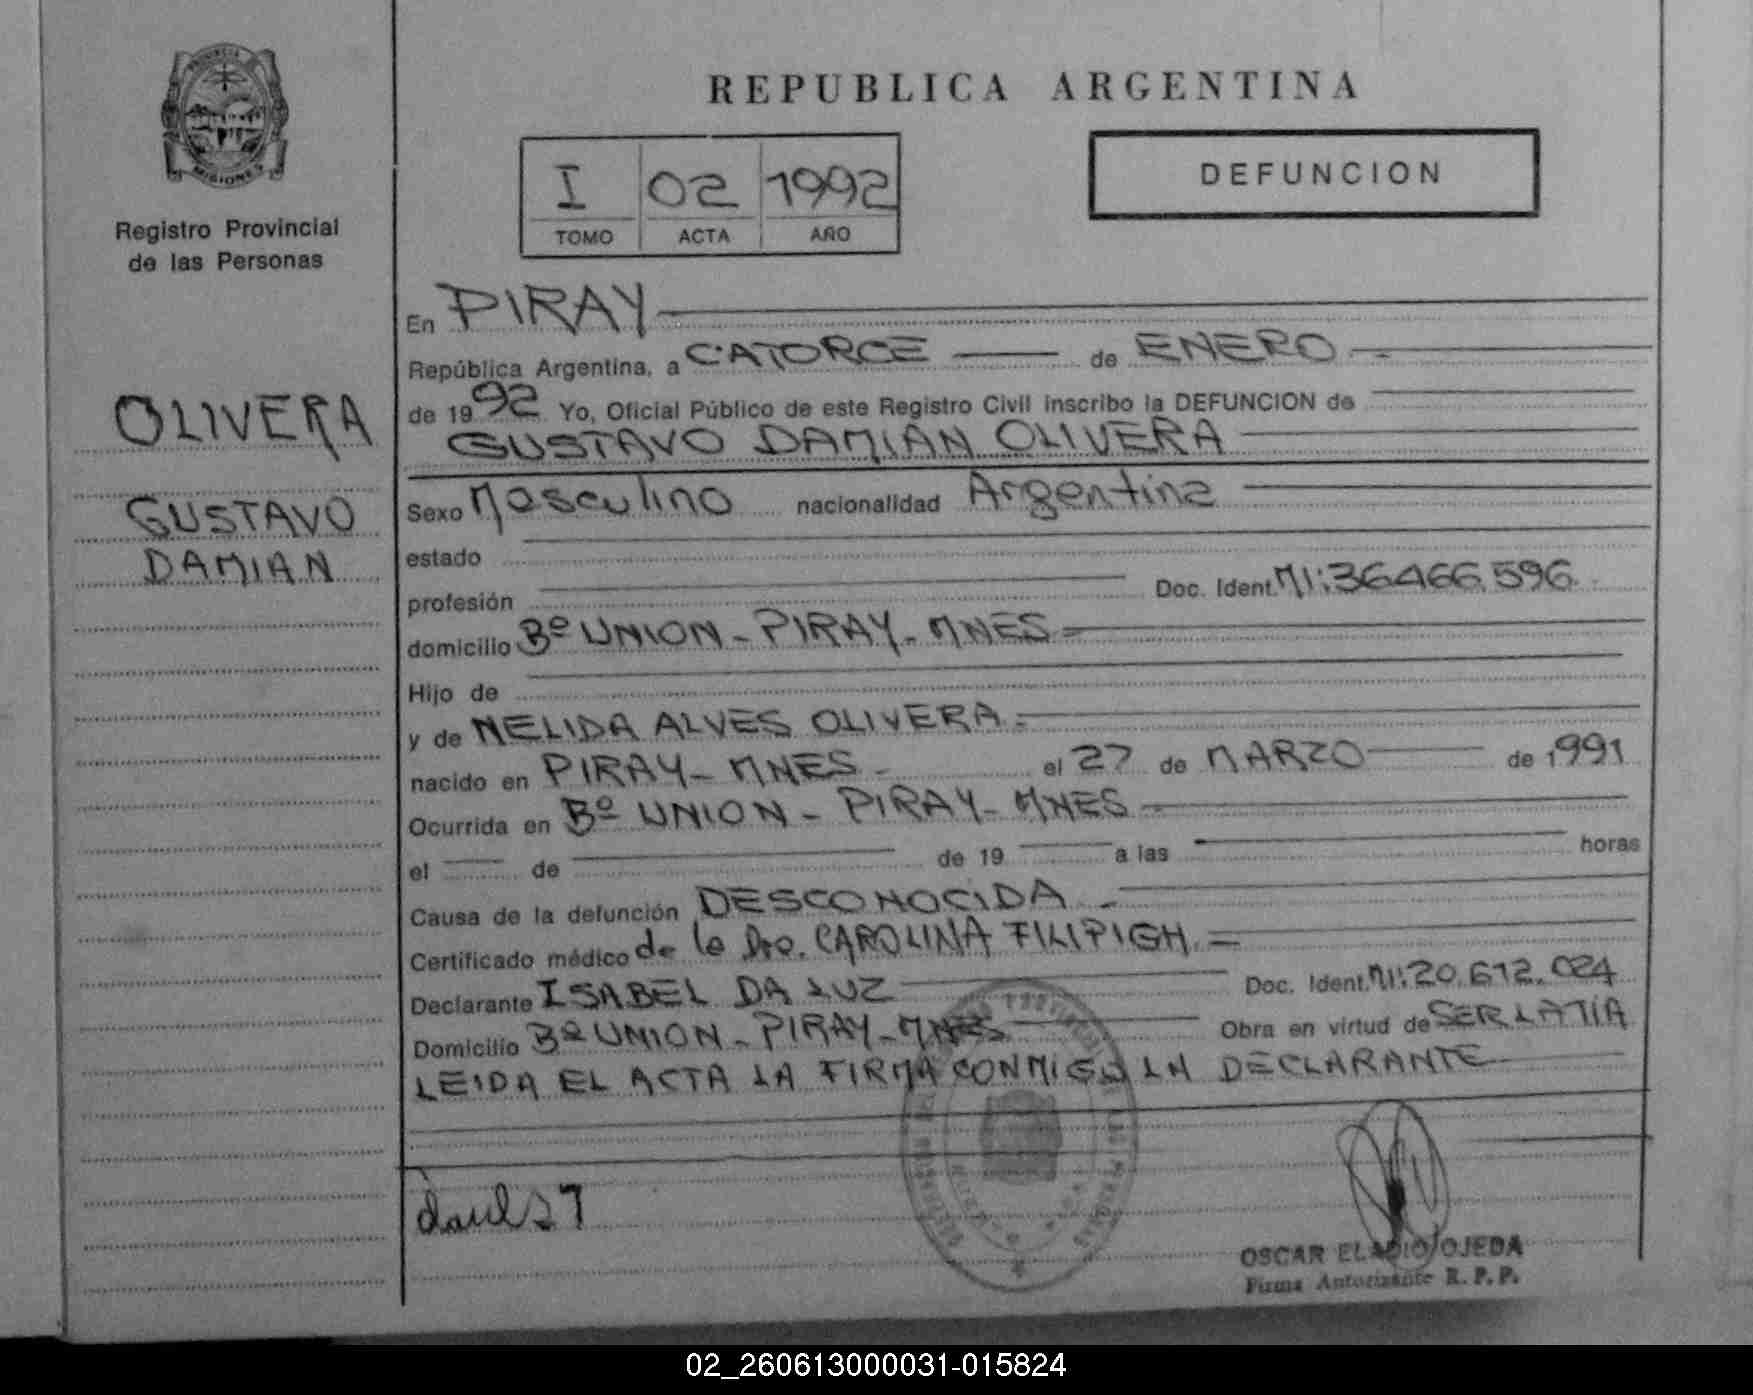 PROVINCIA DE
MISIONES
Registro Provincial
de las Personas
OLIVERA
GUSTAVO
DAMIAN
REPUBLICA ARGENTINA
I 02 1992
TOMO ACTA AÑO
DEFUNCION
En PIRAY
República Argentina, a CATORCE de ENERO
de 1992 Yo, Oficial Público de este Registro Civil inscribo la DEFUNCION de
GUSTAVO DAMIAN OLIVERA
Sexo Masculino nacionalidad Argentina
estado
profesión Doc. Ident. MI: 36466.596
domicilio Bº UNION - PIRAY - MNES
Hijo de
y de NELIDA ALVES OLIVERA
nacido en PIRAY - MNES - el 27 de MARZO de 1991
Ocurrida en Bº UNION - PIRAY - MNES
el de de 19 a las horas
Causa de la defunción DESCONOCIDA
Certificado médico de la Dra. CAROLINA FILIPIGH
Declarante ISABEL DA LUZ Doc. Ident. MI: 20.612.024
Domicilio Bº UNION - PIRAY - MNES Obra en virtud de SER LA TIA
LEIDA EL ACTA LA FIRMA CONMIGO LA DECLARANTE
OSCAR ELADIO OJEDA
Firma Autorizante R. P. P.
02_260613000031-015824